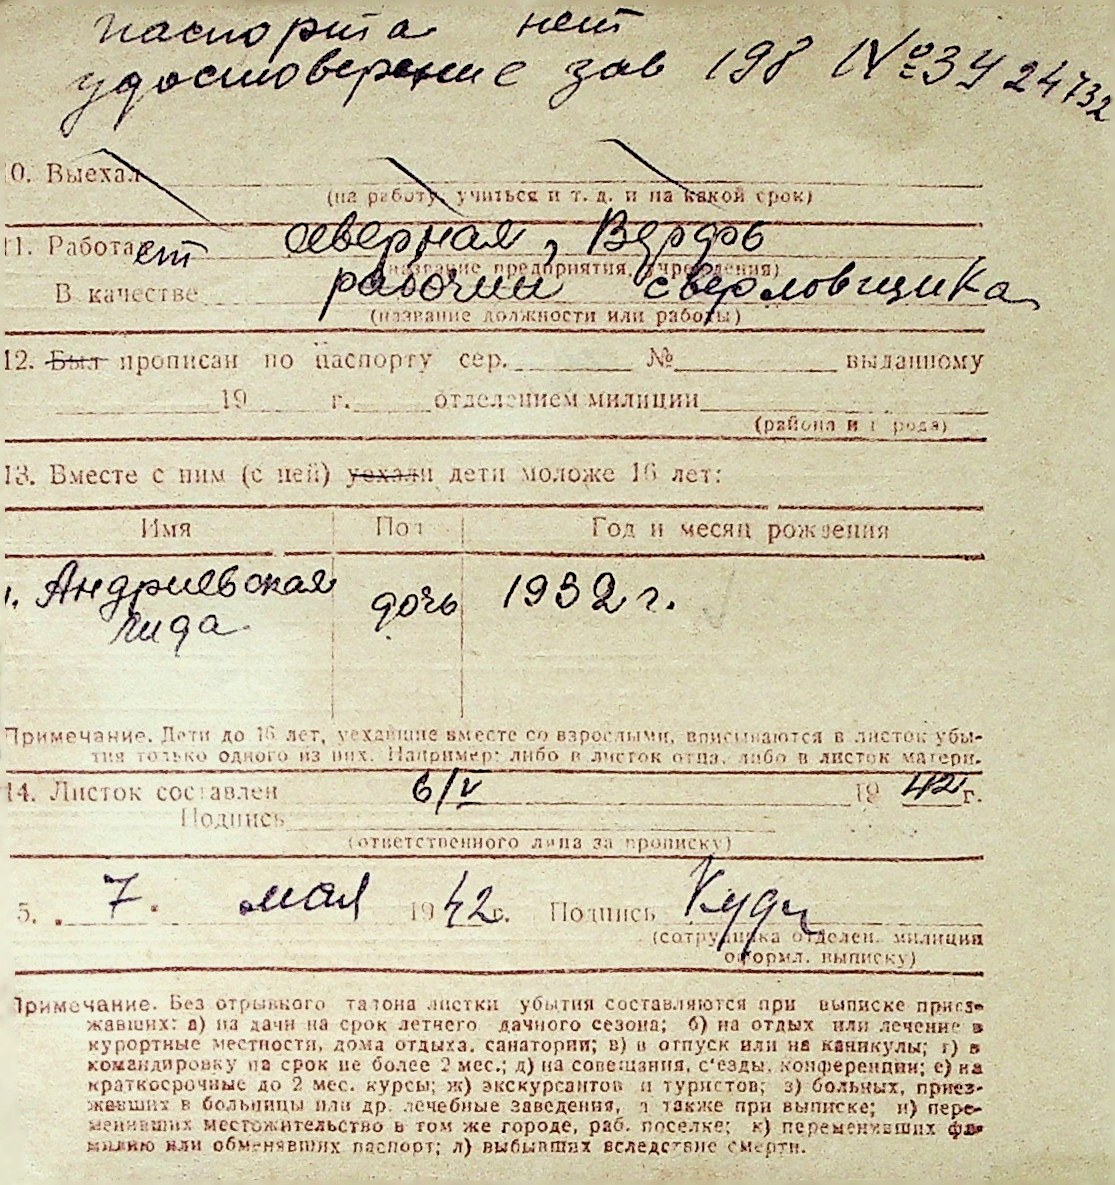 паспорта нет
удостоверение зав 198 № 3У 24732
10. Выехал
(на работу, учиться и т. д. и на какой срок)
11. Работает Северная, Верфь
(название предприятия, учреждения)
В качестве рабочий сверловщика
(название должности или работы)
12. Был прописан по паспорту сер. № выданному
19 г. отделением милиции
(района и города)
13. Вместе с ним (с ней) уехали дети моложе 16 лет:
Имя Пол Год и месяц рождения
1. Андриевская дочь 1932 г.
Лида
Примечание. Дети до 16 лет, уехавшие вместе со взрослыми, вписываются в листок убы-
тия только одного из них. Например: либо в листок отца, либо в листок матери.
14. Листок составлен 6/V 1942 г.
Подпись
(ответственного лица за прописку)
5. 7. мая 1942 г. Подпись
(сотрудника отделен. милиции
оформл. выписку)
Примечание. Без отрывного талона листки убытия составляются при выписке приез-
жавших: а) на дачи на срок летнего дачного сезона; б) на отдых или лечение в
курортные местности, дома отдыха, санатории; в) в отпуск или на каникулы; г) в
командировку на срок не более 2 мес.; д) на совещания, с'езды, конференции; е) на
краткосрочные до 2 мес. курсы; ж) экскурсантов и туристов; з) больных, приез-
жавших в больницы или др. лечебные заведения, а также при выписке; и) пере-
менивших местожительство в том же городе, раб. поселке; к) переменивших фа-
милию или обменявших паспорт; л) выбывших вследствие смерти.